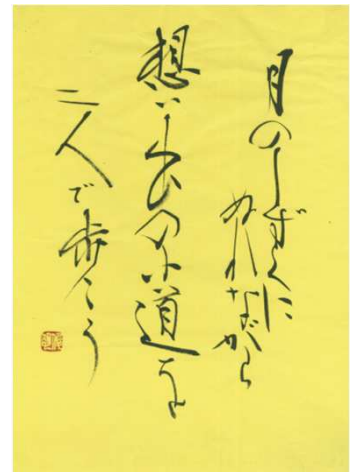 月のしずくに
ぬれながら
想い出の小道を
二人で歩こう